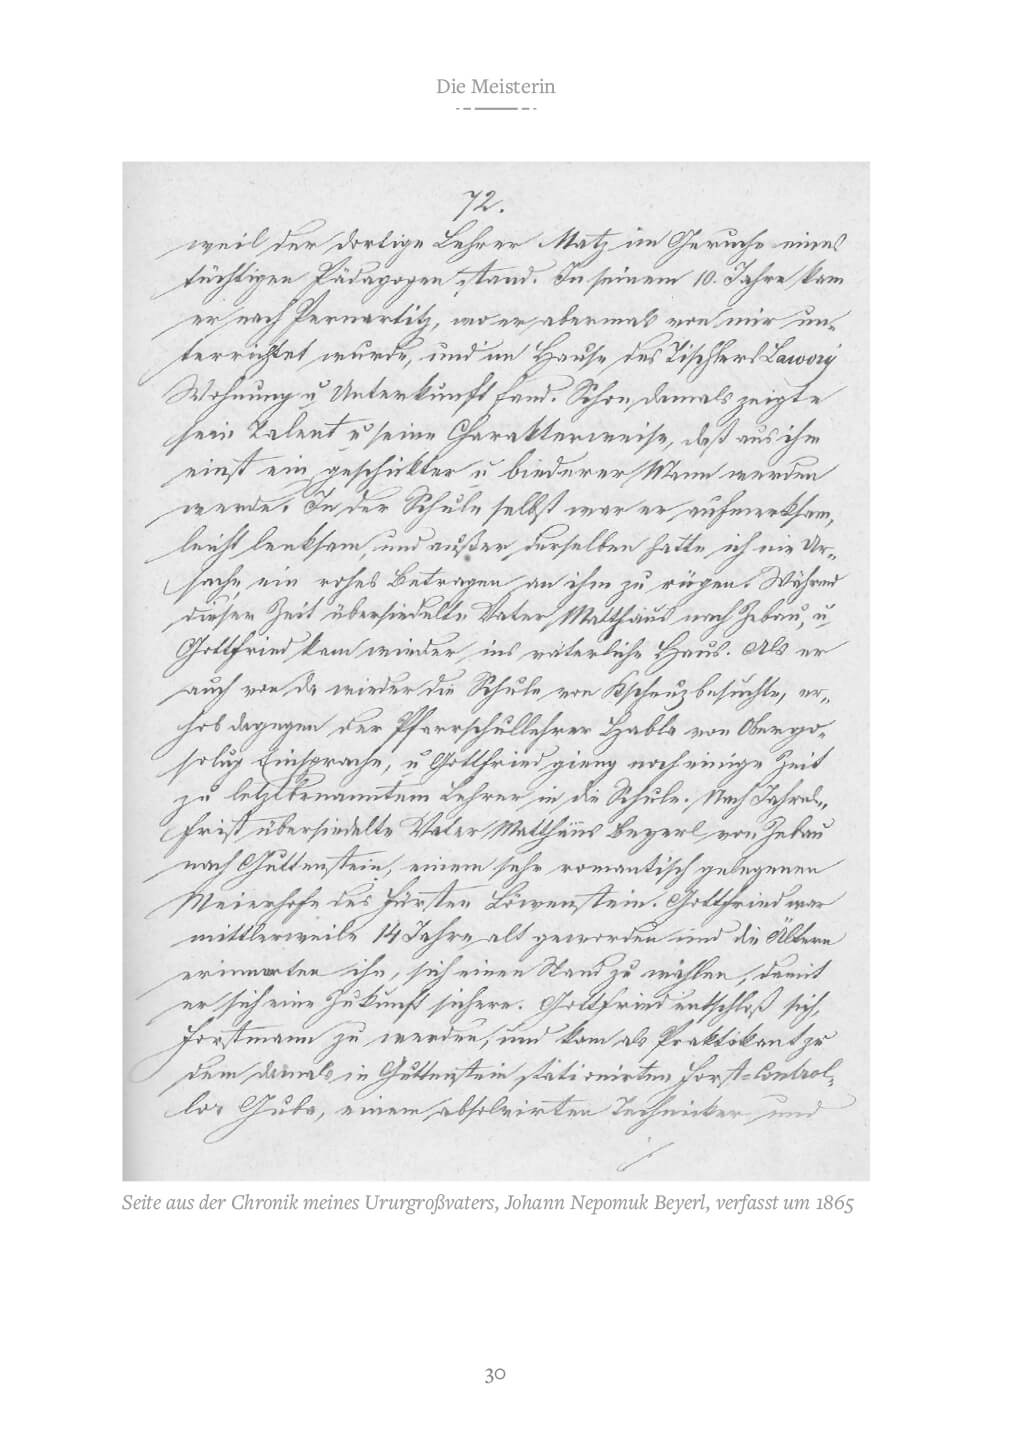 Die Meisterin
72.
weil der dortige Lehrer Matz im Geruche eines
tüchtigen Pädagogen stand. In seinem 10. Jahre kam
er nach Pernartitz, wo er abermals von mir un-
terrichtet wurde, und im Hause des Tischlers
Wohnung u Unterkunft fand. Schon damals zeigte
sein Talent u seine Charakterweise, daß aus ihm
einst ein geschickter u biederer Mann werden
werde. In der Schule selbst war er aufmerksam,
leicht lenksam, und außer derselben hatte ich nie Ur-
sache, ein rohes Betragen an ihm zu rügen. Während
dieser Zeit übersiedelte Vater Matthäus nach Zebau, u
Gottfried kam wieder ins väterliche Haus. Als er
auch von da wieder die Schule von Kscheuz besuchte, er-
hob dagegen der Pfarrschullehrer Habla von Obergo-
solup Einsprache, u Gottfried gieng noch einige Zeit
zu letztbenanntem Lehrer in die Schule. Nach Jahres-
frist übersiedelte Vater Matthäus Beyerl von Zebau
nach Guttenstein, einem sehr romantisch gelegenen
Meierhofe des Fürsten Löwenstein. Gottfried war
mittlerweile 14 Jahre alt geworden und die Ältern
ihn, sich einen Stand zu wählen, damit
er sich eine Zukunft sichere. Gottfried entschloß sich,
Forstmann zu werden, und kam als Praktikant zu
dem damals in Guttenstein stationirten Forst-Control-
lor Guba, einem absolvirten Techniker und
Seite aus der Chronik meines Ururgroßvaters, Johann Nepomuk Beyerl, verfasst um 1865
30